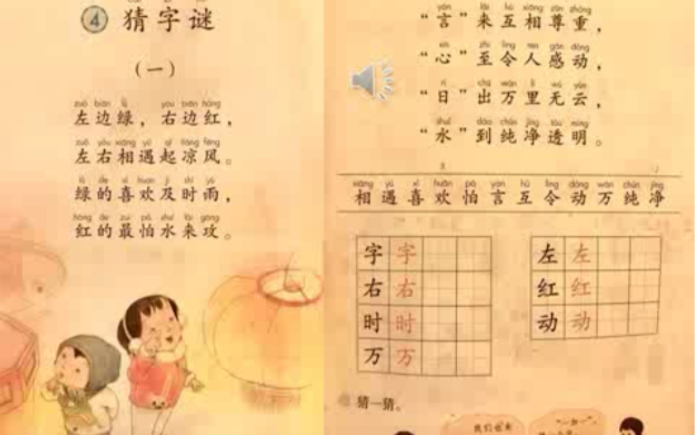 4 猜字谜
（一）
zuǒ biān lǜ yòu biān hóng
左边绿，右边红，
zuǒ yòu xiāng yù qǐ liáng fēng
左右相遇起凉风。
lǜ de xǐ huan jí shí yǔ
绿的喜欢及时雨，
hóng de zuì pà shuǐ lái gōng
红的最怕水来攻。
yán lái hù xiāng zūn zhòng
“言”来互相尊重，
xīn zhì lìng rén gǎn dòng
“心”至令人感动，
rì chū wàn lǐ wú yún
“日”出万里无云，
shuǐ dào chún jìng tòu míng
“水”到纯净透明。
xiāng yù xǐ huān pà yán hù lìng dòng wàn chún jìng
相遇喜欢怕言互令动万纯净
字 字
右 右
时 时
万 万
左 左
红 红
动 动
猜一猜。
我们也来